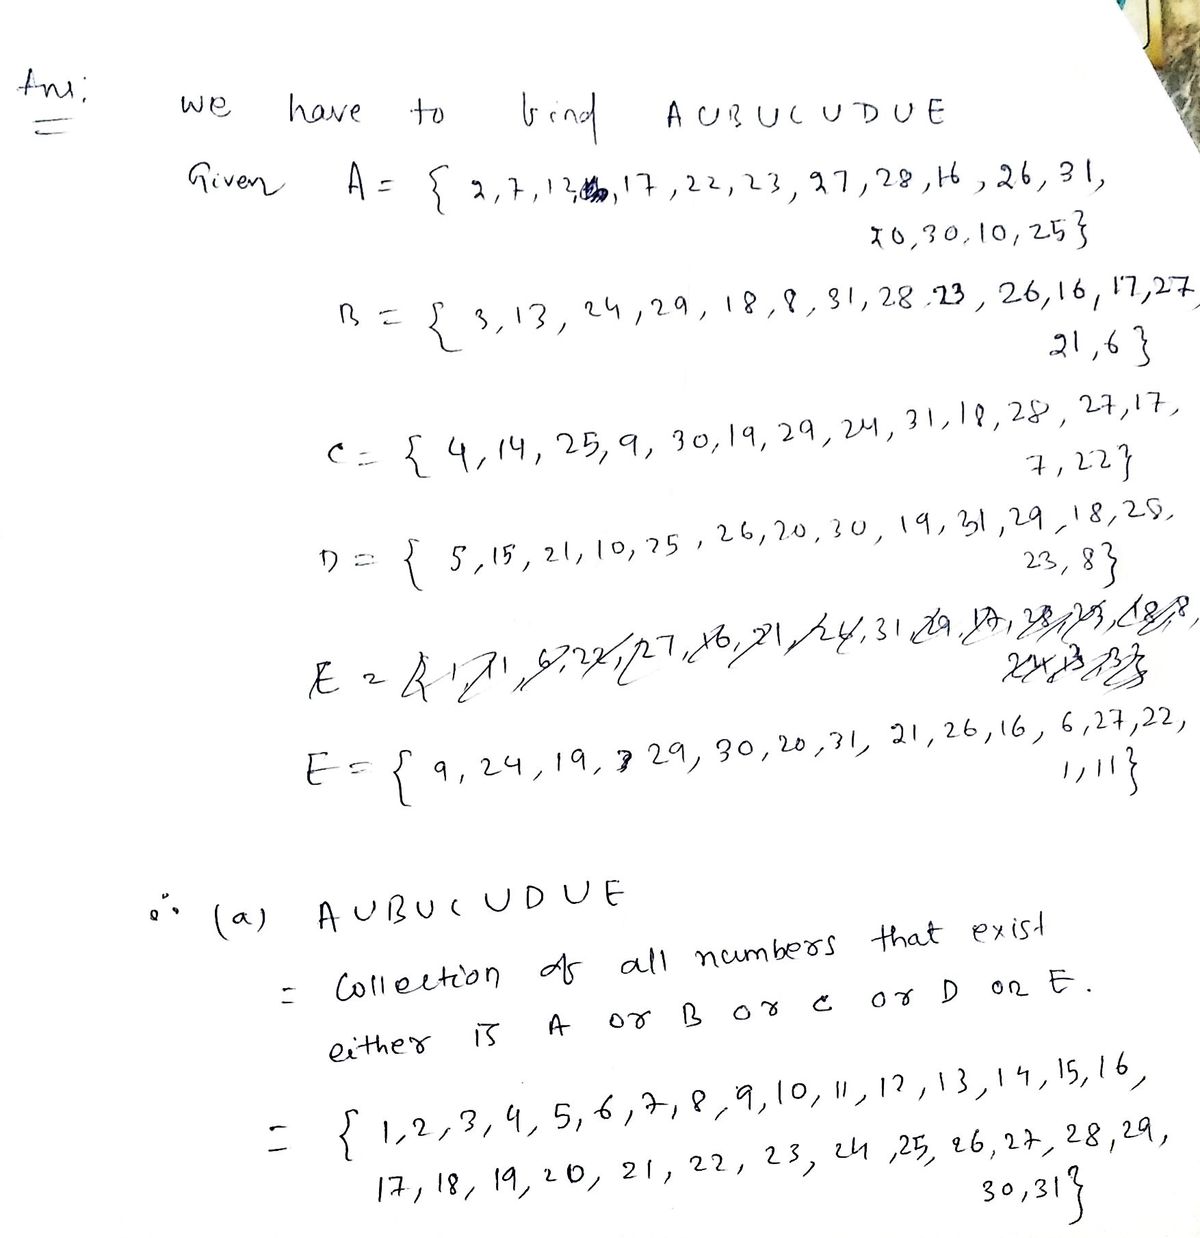 Ans:
we have to find A U B U C U D U E
Given A = { 2, 7, 12, 17, 22, 23, 27, 28, 16, 26, 31,
20, 30, 10, 25}
B = { 3, 13, 24, 29, 18, 8, 31, 28, 23, 26, 16, 17, 27,
21, 6 }
C = { 4, 14, 25, 9, 30, 19, 29, 24, 31, 18, 28, 27, 17,
7, 22}
D = { 5, 15, 21, 10, 25, 26, 20, 30, 19, 31, 29, 18, 28,
23, 8}
E =
E = { 9, 24, 19, 29, 30, 20, 31, 21, 26, 16, 6, 27, 22,
1, 11}
∴ (a) A U B U C U D U E
= Collection of all numbers that exist
either is A or B or C or D or E.
= { 1, 2, 3, 4, 5, 6, 7, 8, 9, 10, 11, 12, 13, 14, 15, 16,
17, 18, 19, 20, 21, 22, 23, 24, 25, 26, 27, 28, 29,
30, 31}